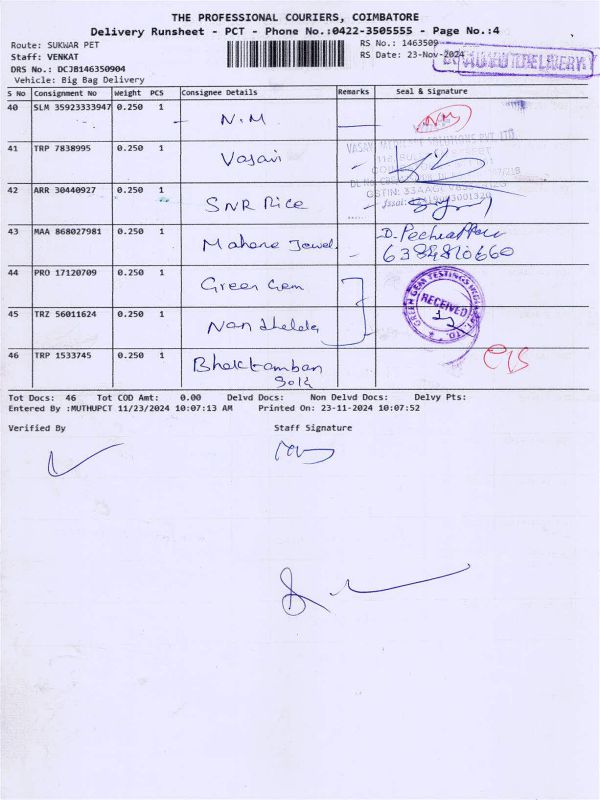 THE PROFESSIONAL COURIERS, COIMBATORE
Delivery Runsheet - PCT - Phone No.:0422-3505555 - Page No.:4
Route: SUKWAR PET RS No.: 1463509
Staff: VENKAT RS Date: 23-Nov-2024
DRS No.: DCJB146350904
Vehicle: Big Bag Delivery
S No Consignment No Weight PCS Consignee Details Remarks Seal & Signature
40 SLM 35923333947 0.250 1 N.M
41 TRP 7838995 0.250 1 Vasavi
42 ARR 30440927 0.250 1 SNR Rice
43 MAA 868027981 0.250 1 Mahara Jewel
6384810660
44 PRO 17120709 0.250 1 Green Gem
GREEN GEM TESTINGS
RECEIVED
45 TRZ 56011624 0.250 1
46 TRP 1533745 0.250 1
Tot Docs: 46 Tot COD Amt: 0.00 Delvd Docs: Non Delvd Docs: Delvy Pts:
Entered By :MUTHUPCT 11/23/2024 10:07:13 AM Printed On: 23-11-2024 10:07:52
Verified By Staff Signature